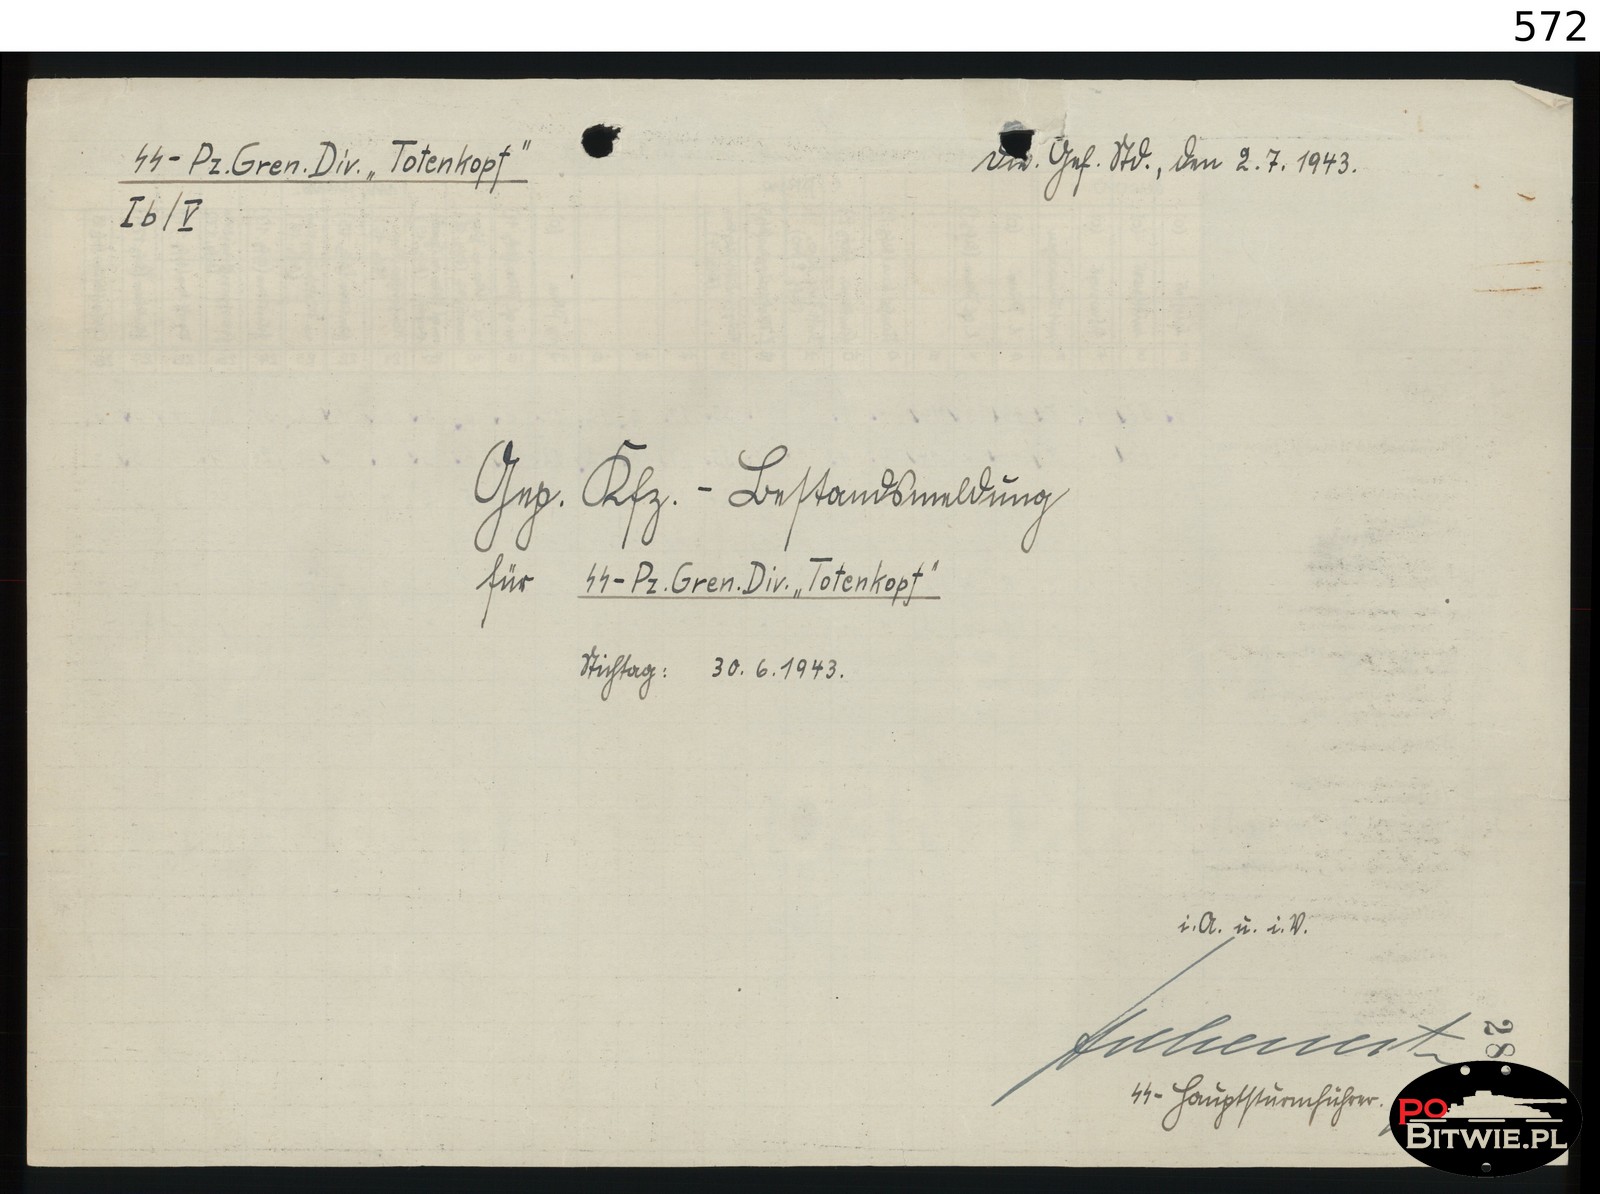 572
SS-Pz.Gren.Div. „Totenkopf"
Div. Gef. Std., den 2.7.1943.
Ib/V
Gep. Kfz. - Bestandsmeldung
für SS-Pz.Gren.Div. „Totenkopf"
Stichtag: 30.6.1943.
i.A. u. i.V.
28
SS-Hauptsturmführer.
PO
BITWIE.PL